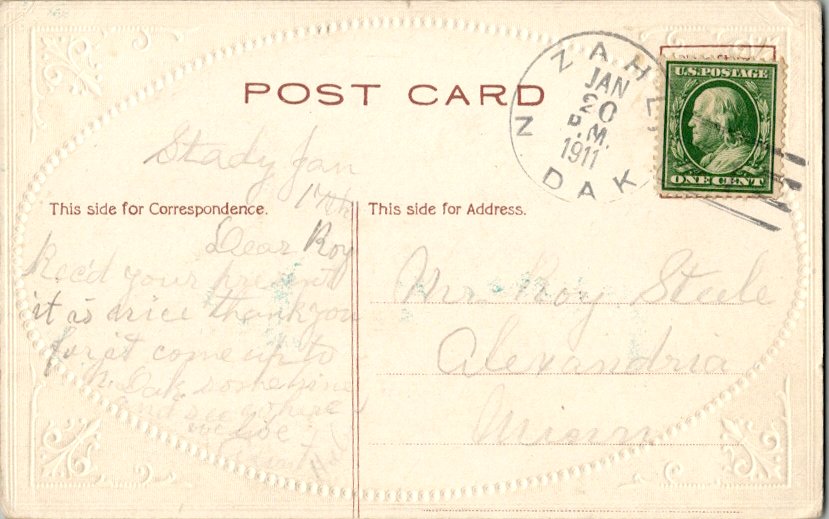 POST CARD
ZAHL
JAN
20
P.M.
1911
N DAK
U.S. POSTAGE
ONE CENT
Stady Jan
17th
This side for Correspondence.
This side for Address.
Dear Roy
Rec'd your present
it is nice thank you
for it come up to
N. Dak sometime
and see where
we live
Aunt
Mr Roy Steele
Alexandria
Minn